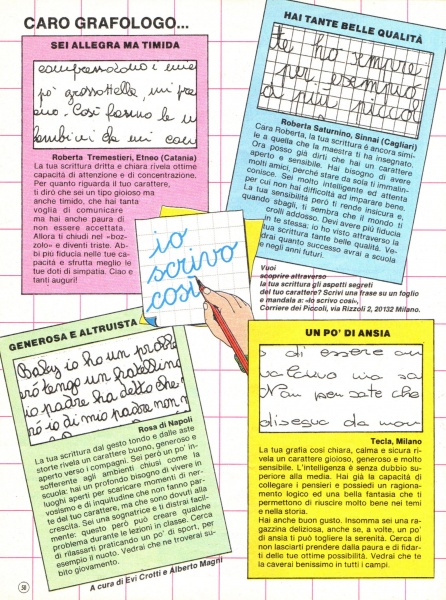 CARO GRAFOLOGO...
SEI ALLEGRA MA TIMIDA
comprensione i miei
po' grassottella, mi pre
ano. Così fanno le m
bambini da mi can
Roberta Tremestieri, Etneo (Catania)
La tua scrittura dritta e chiara rivela ottime
capacità di attenzione e di concentrazione.
Per quanto riguarda il tuo carattere,
ti dirò che sei un tipo gioioso ma
anche timido, che hai tanta
voglia di comunicare
ma hai anche paura di
non essere accettata.
Allora ti chiudi nel «boz-
zolo» e diventi triste. Ab-
bi più fiducia nelle tue ca-
pacità e sfrutta meglio le
tue doti di simpatia. Ciao e
tanti auguri!
HAI TANTE BELLE QUALITÀ
te ho sempre
per esempio
di più piccol
Roberta Saturnino, Sinnai (Cagliari)
Cara Roberta, la tua scrittura è ancora simi-
le a quella che la maestra ti ha insegnato.
Ora posso già dirti che hai un carattere
aperto e sensibile. Hai bisogno di avere
molti amici, perché stare da sola ti immalin-
conisce. Sei molto intelligente ed attenta
per cui non hai difficoltà ad imparare bene.
La tua sensibilità però ti rende insicura e,
quando sbagli, ti sembra che il mondo ti
crolli addosso. Devi avere più fiducia
in te stessa: io ho visto attraverso la
tua scrittura tante belle qualità. Ve-
drai quanto successo avrai a scuola
e negli anni futuri.
io
scrivo
così
Vuoi
scoprire attraverso
la tua scrittura gli aspetti segreti
del tuo carattere? Scrivi una frase su un foglio
e mandala a: «Io scrivo così»,
Corriere dei Piccoli, via Rizzoli 2, 20132 Milano.
GENEROSA E ALTRUISTA
Baby io ho un probl
erò tengo un fratellino
io padre ha detto che
rò io di mio padre non m
Rosa di Napoli
La tua scrittura dal gesto tondo e dalle aste
storte rivela un carattere buono, generoso e
aperto verso i compagni. Sei però un po' in-
sofferente agli ambienti chiusi come la
scuola: hai un profondo bisogno di vivere in
luoghi aperti per scaricare momenti di ner-
vosismo e di inquietudine che non fanno par-
te del tuo carattere, ma che sono dovuti alla
crescita. Sei una sognatrice e ti distrai facil-
mente: questo però può creare qualche
problema durante le lezioni in classe. Cerca
di rilassarti praticando un po' di sport, per
esempio il nuoto. Vedrai che ne troverai su-
bito giovamento.
UN PO' DI ANSIA
di essere an
valcivo ma sa
Non pensate che
disegua da mon
Tecla, Milano
La tua grafia così chiara, calma e sicura ri-
vela un carattere gioioso, generoso e molto
sensibile. L'intelligenza è senza dubbio su-
periore alla media. Hai già la capacità di
collegare i pensieri e possiedi un ragiona-
mento logico ed una bella fantasia che ti
permettono di riuscire molto bene nei temi
e nella storia.
Hai anche buon gusto. Insomma sei una ra-
gazzina deliziosa, anche se, a volte, un po'
di ansia ti può togliere la serenità. Cerca di
non lasciarti prendere dalla paura e di fidar-
ti delle tue ottime possibilità. Vedrai che te
la caverai benissimo in tutti i campi.
A cura di Evi Crotti e Alberto Magni
50